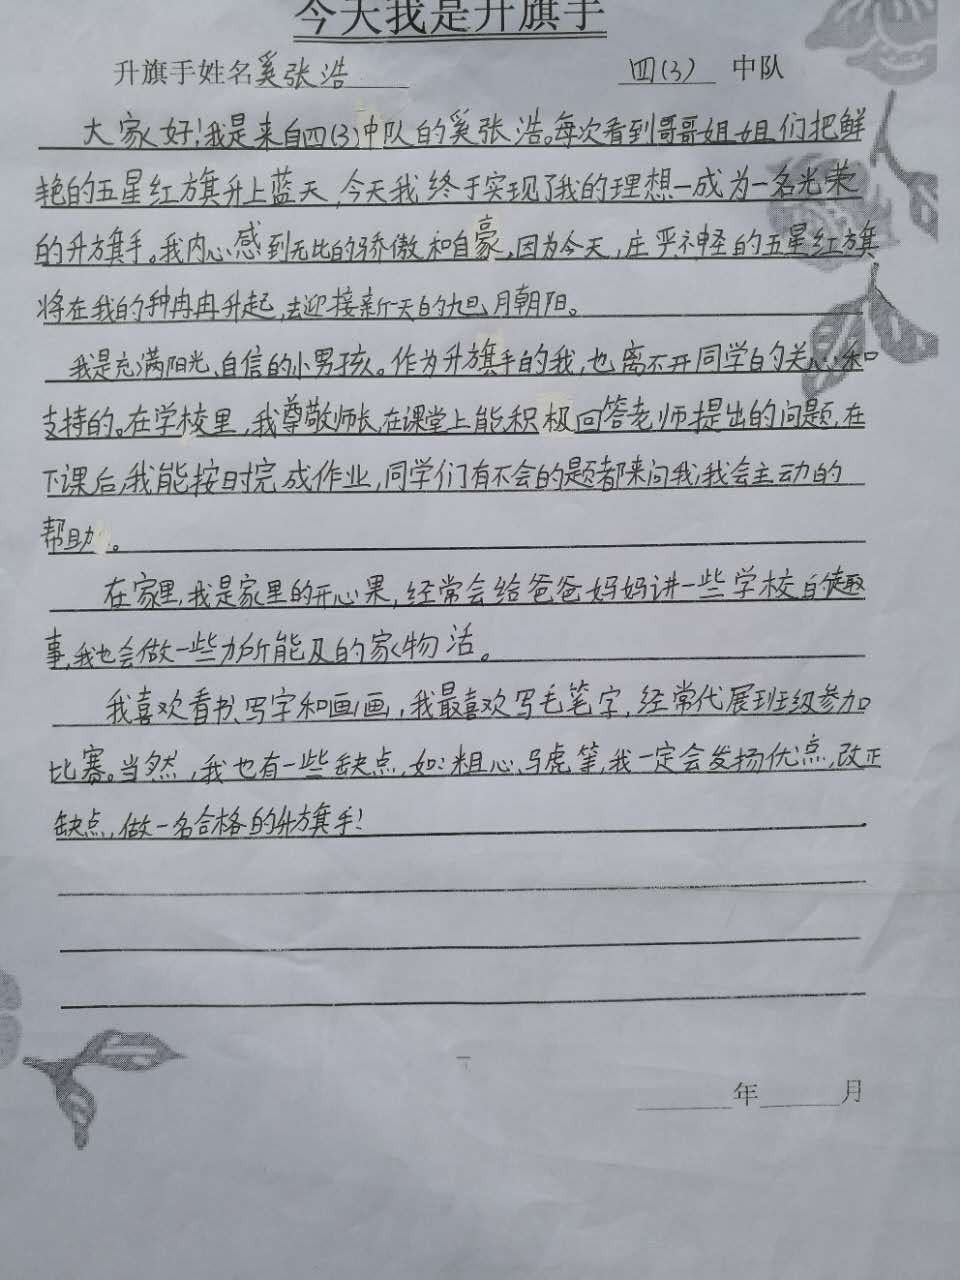 今天我是升旗手
升旗手姓名奚张浩 四(3) 中队
大家好!我是来自四(3)中队的奚张浩。每次看到哥哥姐姐们把鲜
艳的五星红旗升上蓝天,今天我终于实现了我的理想—成为一名光荣
的升旗手。我内心感到无比的骄傲和自豪,因为今天,庄严神圣的五星红旗
将在我的种冉冉升起,去迎接新一天的旭日朝阳。
我是充满阳光、自信的小男孩。作为升旗手的我,也离不开同学的关心和
支持的。在学校里,我尊敬师长,在课堂上能积极回答老师提出的问题,在
下课后,我能按时完成作业,同学们有不会的题都来问我,我会主动的
帮助。
在家里,我是家里的开心果,经常会给爸爸妈妈讲一些学校的趣
事,我也会做一些力所能及的家物活。
我喜欢看书、写字和画画,我最喜欢写毛笔字,经常代展班级参加
比赛。当然,我也有一些缺点,如:粗心、马虎等,我一定会发扬优点,改正
缺点,做一名合格的升旗手!
年 月